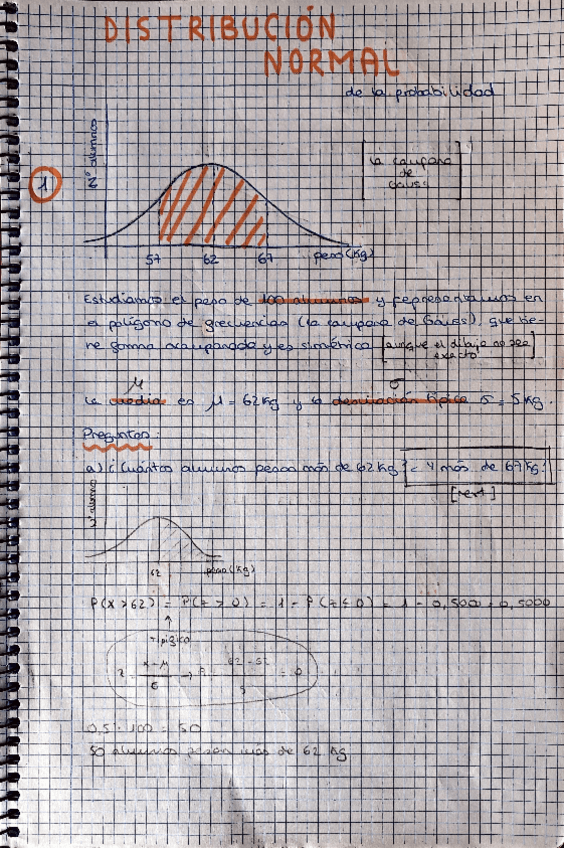 DISTRIBUCIÓN
NORMAL
de la probabilidad
Nº alumnos
1
la campana
de
Gauss
57 62 67 peso (Kg)
Estudiamos el peso de 100 alumnos y representamos en
el polígono de frecuencias (la campana de Gauss), que tie-
ne forma acampanada y es simétrica [aunque el dibujo no sea
exacto]
μ σ
La media es μ = 62 Kg y la desviación típica σ = 5 Kg.
Preguntas:
a) ¿Cuántos alumnos pesan más de 62 Kg? ¿Y más de 67 Kg?
Nº alumnos
62 peso (Kg)
P(X > 62) = P(Z > 0) = 1 - P(Z ≤ 0) = 1 - 0,5000 = 0,5000
Tipifico
Z = x - μ / σ → = 62 - 62 / 5 = 0
0,5 · 100 = 50
50 alumnos pesan más de 62 Kg